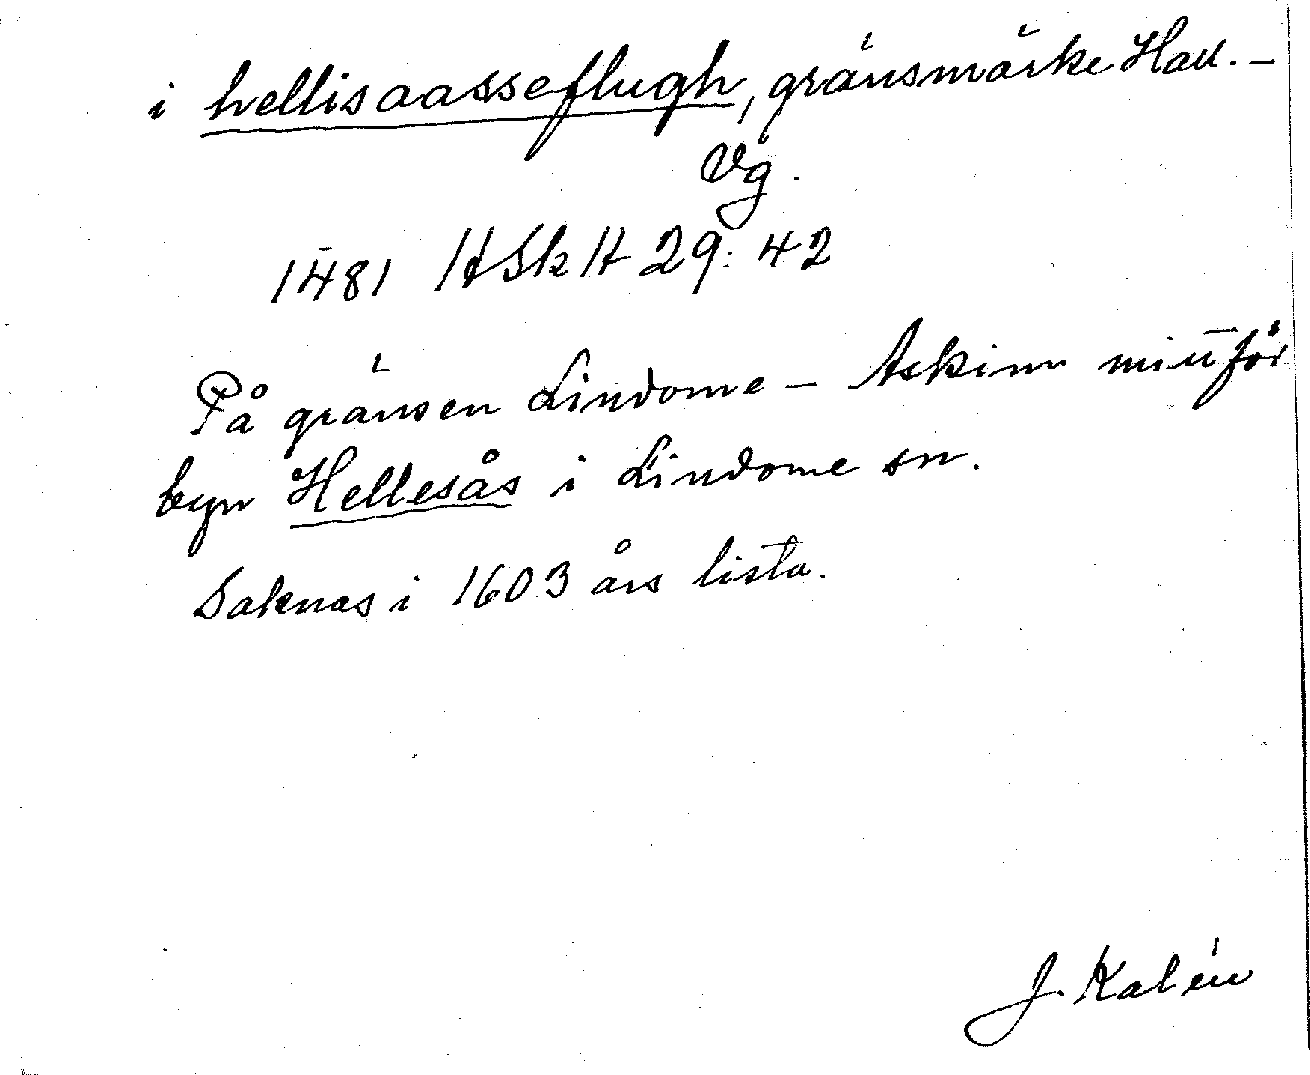 i hellisaasseflugh, gränsmärke Hall. –
Vg.
1481 HSkH 29: 42
På gränsen Lindome – Askim mittför
byn Hellesås i Lindome sn.
Saknas i 1603 års lista.
J. Kalén